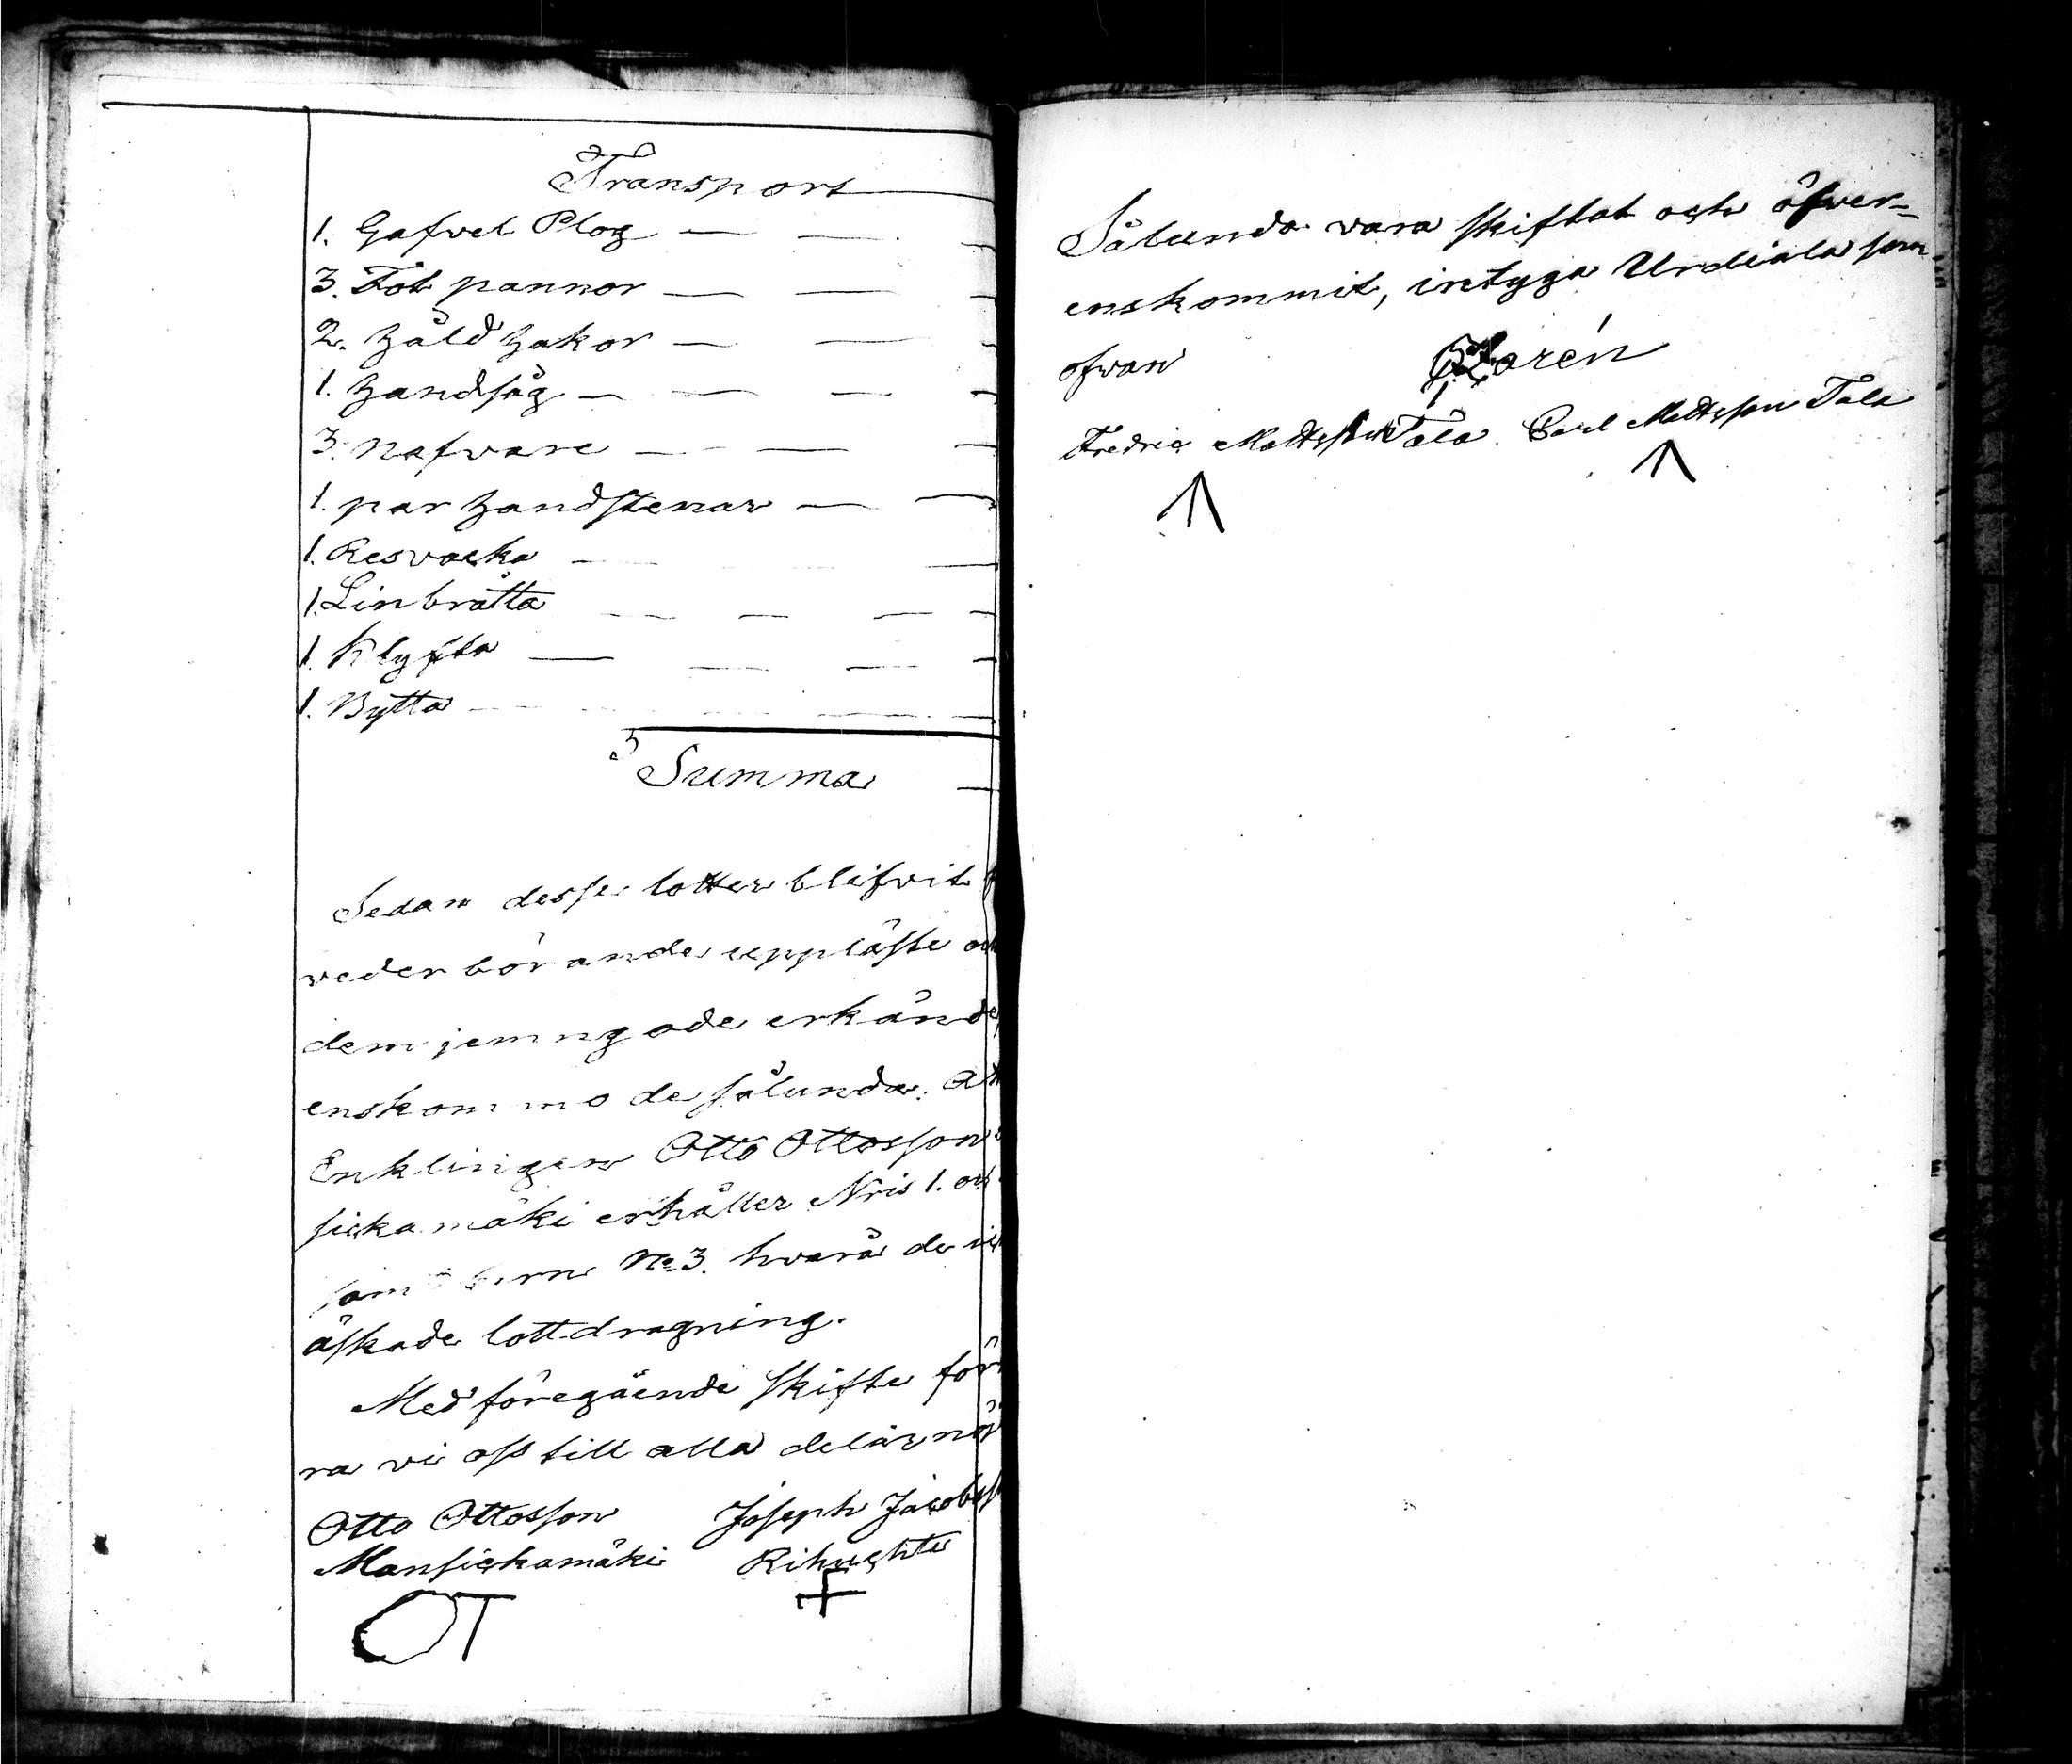 Transport
1. Gafvel Plog
3. Fot pannor
2. Håld Hakor
1. Handsåg
3. Nafvare
1. par Handstenar
1. Resvacka
1. Linbråtta
1. Klyfta
1. Bytta
Summa
Sedan desse lotter blifvit
vederbörande uppläste och
dem jemngode erkände,
enskommo de sålunda: Att
Enklingen Otto Ottosson
sickamäki erhåller Nris 1. och
barn No 3. hvarå de
äskade lottdragning.
Med föregående skifte för
ra vi oss till alla delar nöj
Otto Ottosson Joseph Jacobss
Mansickamäki Rihuehte
OT
Sålunda vara skiftat och öfver-
enskommit, intyga Urdiala som
ofvan Florén
Fredric Mattsson Tala. Carl Mattsson Tala